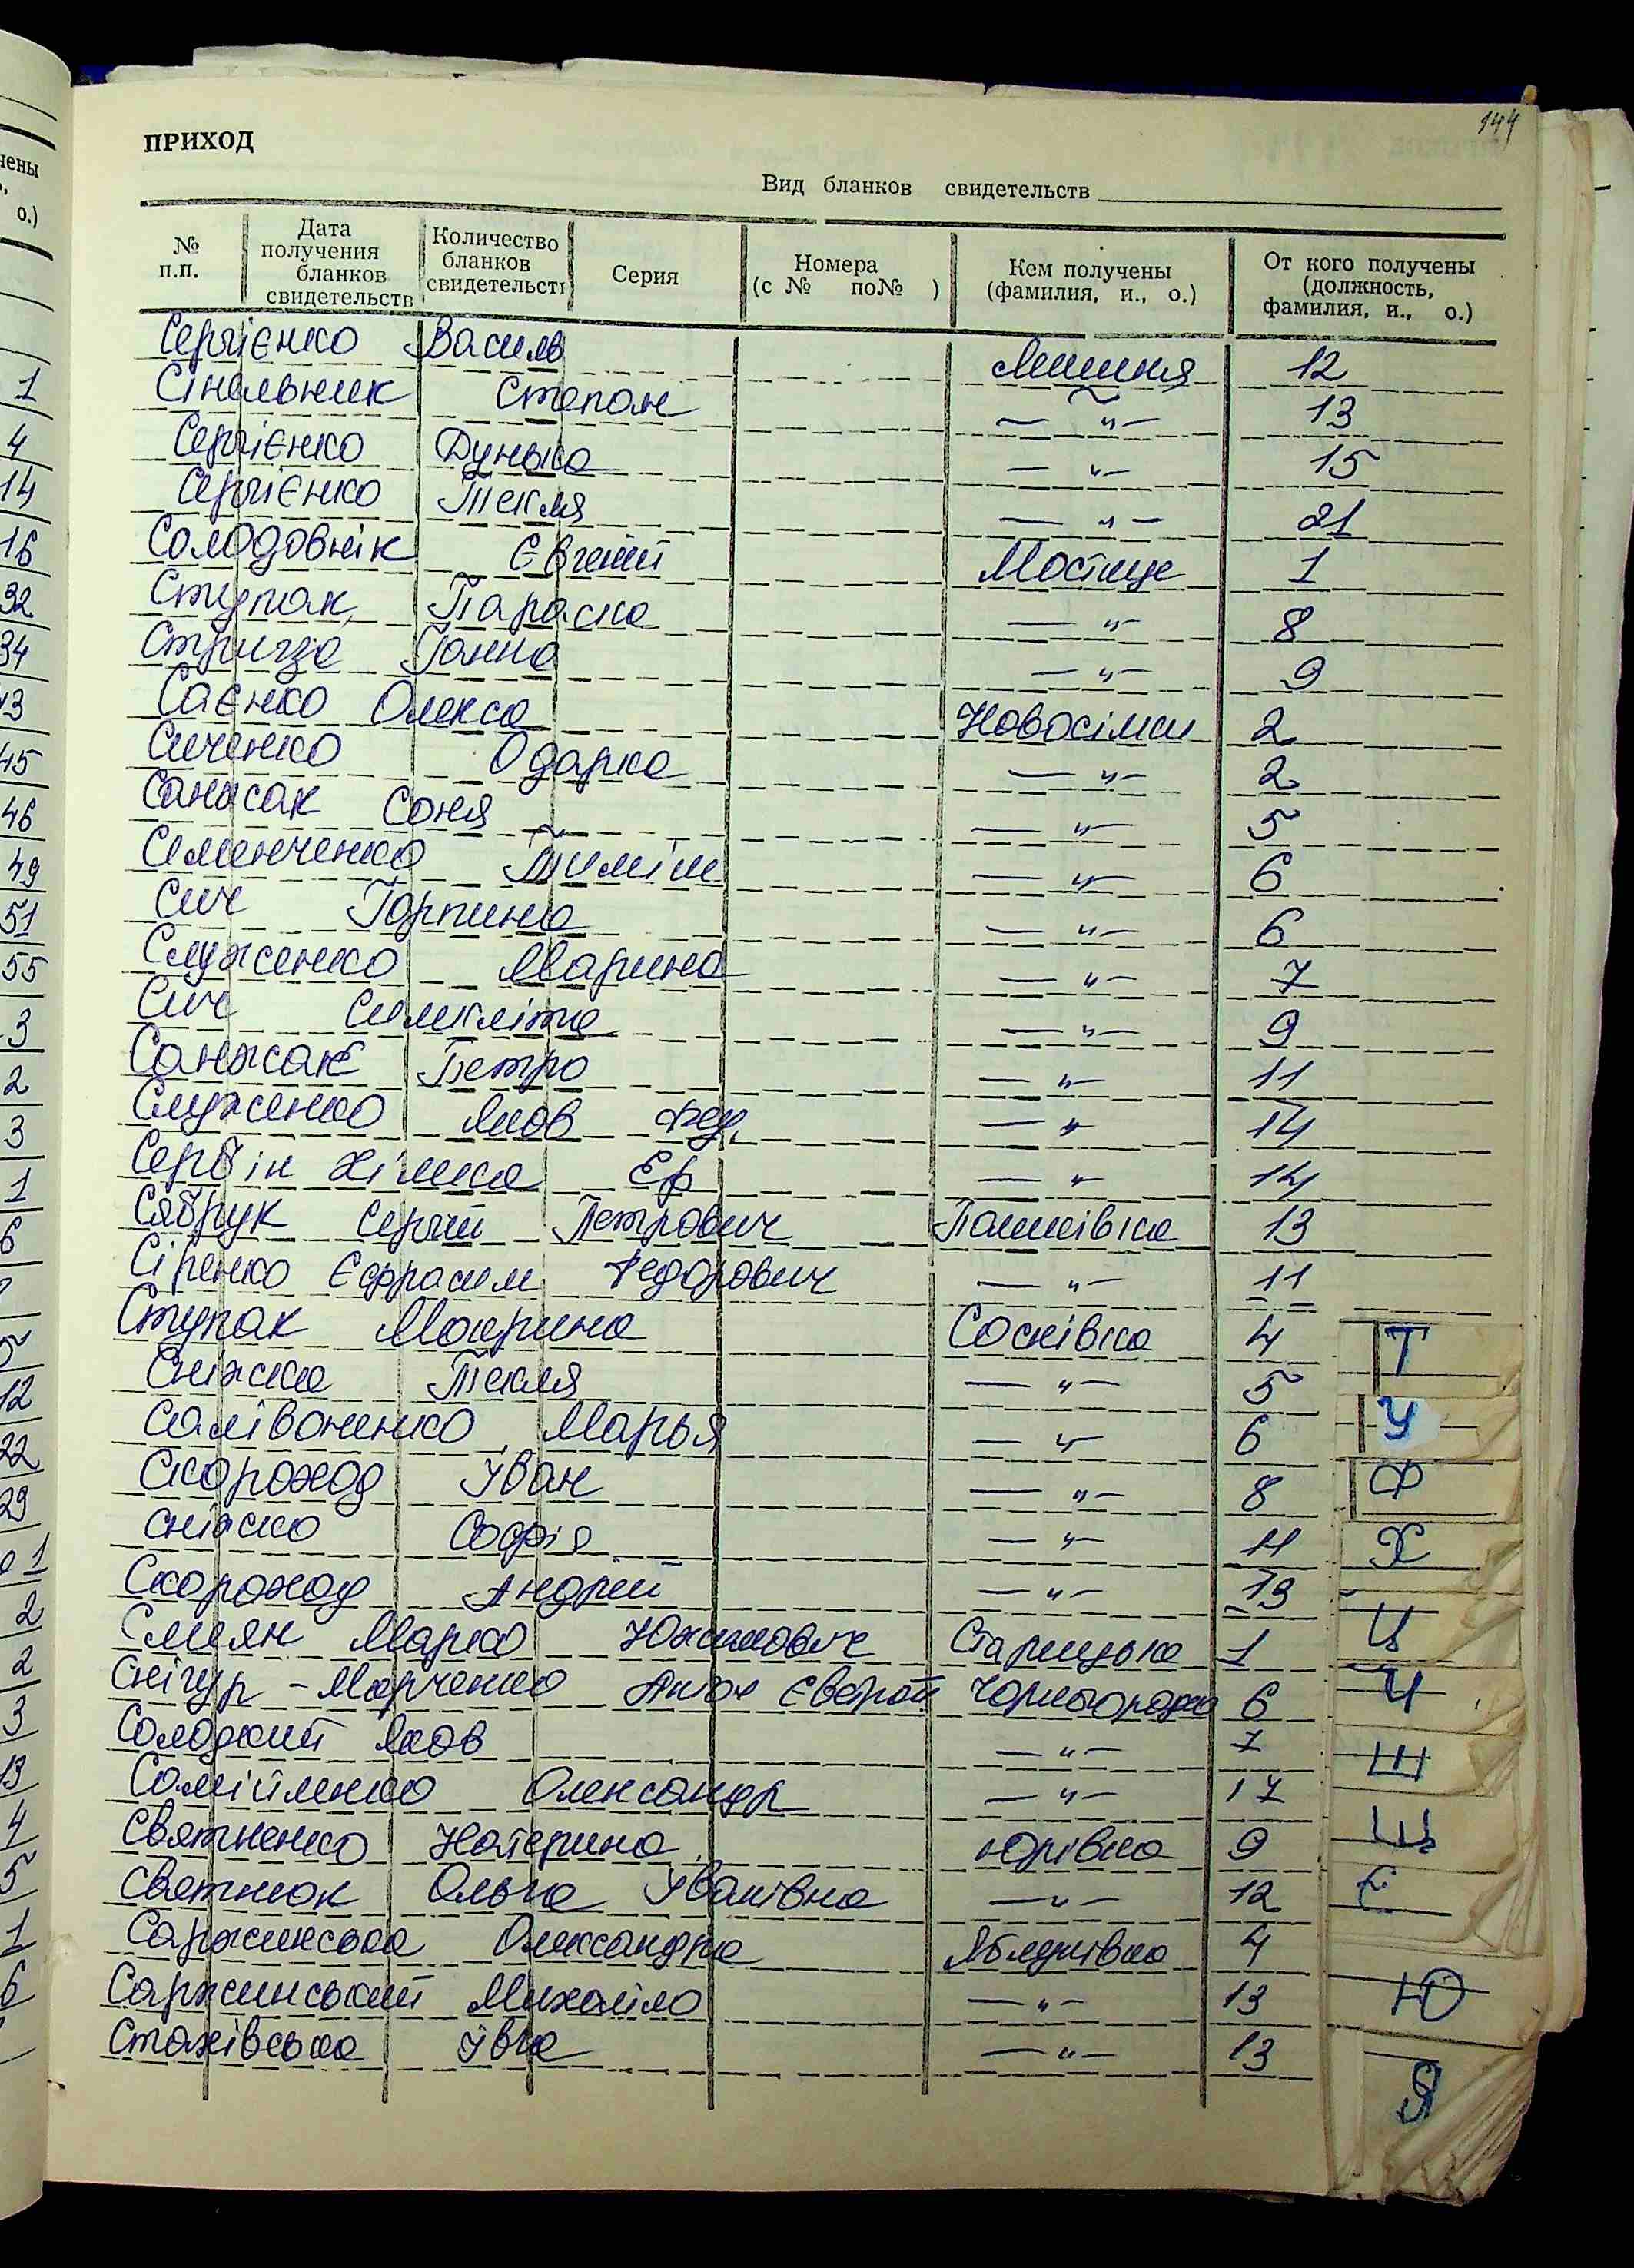 144
ПРИХОД
Вид бланков свидетельств
№ п.п. Дата получения бланков свидетельств Количество бланков свидетельств Серия Номера (с № по№ ) Кем получены (фамилия, и., о.) От кого получены (должность, фамилия, и., о.)
Сергієнко Василь Лишня 12
Сінельник Степан — " — 13
Сергієнко Дунька — " — 15
Сергієнко Текля — " — 21
Солодовнік Євгеній Мостище 1
Ступак Параска — " — 8
Ганна — " — 9
Саєнко Олекса Новосілки 2
Сиченко Одарка — " — 2
Санжак Соня — " — 5
Семенченко — " — 6
Сич Горпина — " — 6
Служенко Марина — " — 7
Сич Симкліта — " — 9
Санжак Петро — " — 11
Служенко Яков Фед. — " — 14
Сербін Хімка Еф — " — 14
Сябрук Сергій Петрович Пашківка 13
Сіренко Єфрасим Федорович — " — 11
Ступак Маврина Соснівка 4
Сніжка Текля — " — 5
Салівоненко Марья — " — 6
Скороход Іван — " — 8
Сніжко Софія — " — 11
Скороход Андрей — " — 13
Смеян Марко Юхимович Старицька 1
Снігур - Марченко Антон Чорногородка 6
Солодкий Яков — " — 7
Самійленко Олександр — " — 17
Святненко Катерина Юрівка 9
Святнюк Ольга Іванівна — " — 12
Саржинська Олександра Яблунівка 4
Саржинський Михайло — " — 13
Стахівська Івга — " — 13
Т
У
Ф
Х
Ц
Ч
Ш
Щ
Є
Ю
Я
1
4
14
16
32
34
43
45
46
49
51
55
3
2
3
1
6
5
12
22
29
1
2
2
3
13
4
5
1
6